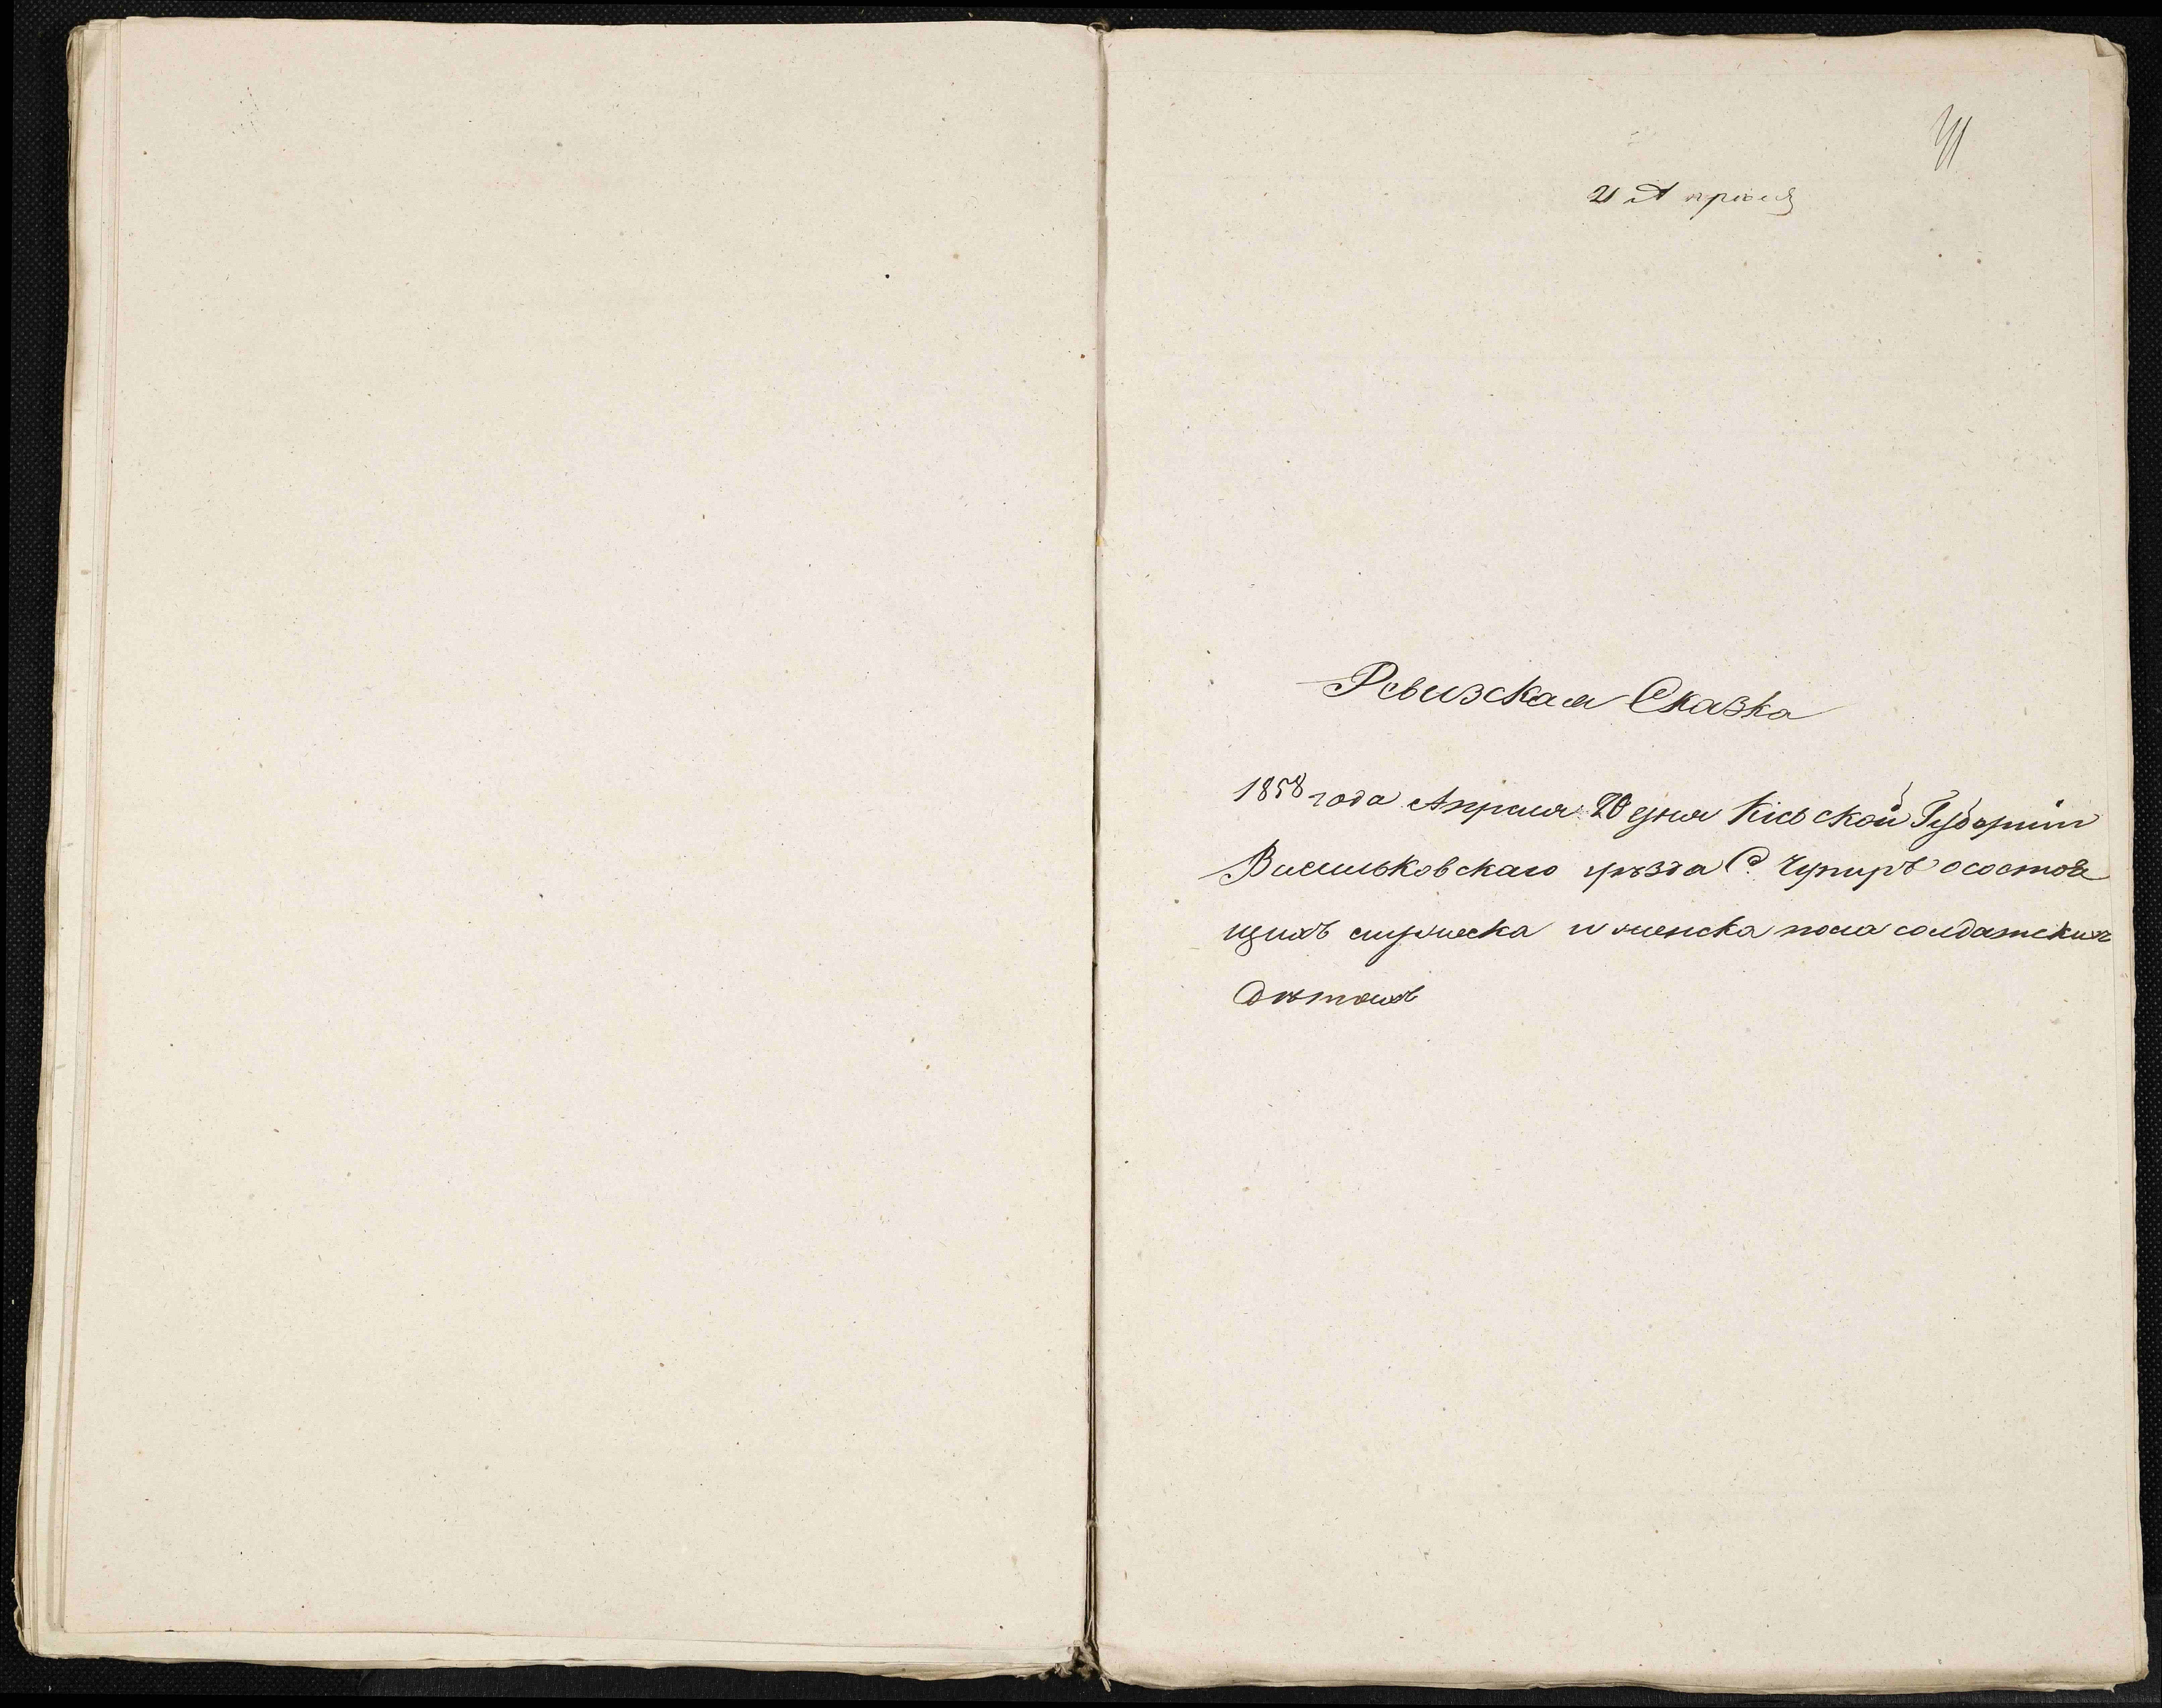 41
21 Апреля
Ревизская Сказка
1858 года Апреля 20 дня Кіевской Губерніи
Васильковскаго уѣзда С. Чупиръ осостоя
щихъ мужеска и женска пола солдатскихъ
дѣтяхъ